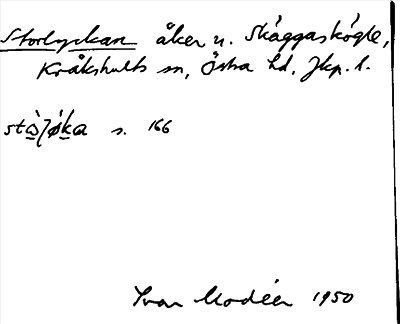 Storlyckan åker u. Skäggaskögle,
Kråkshults sn, Östra hd, Jkp. l.
s. 166
Ivar Modéer 1950